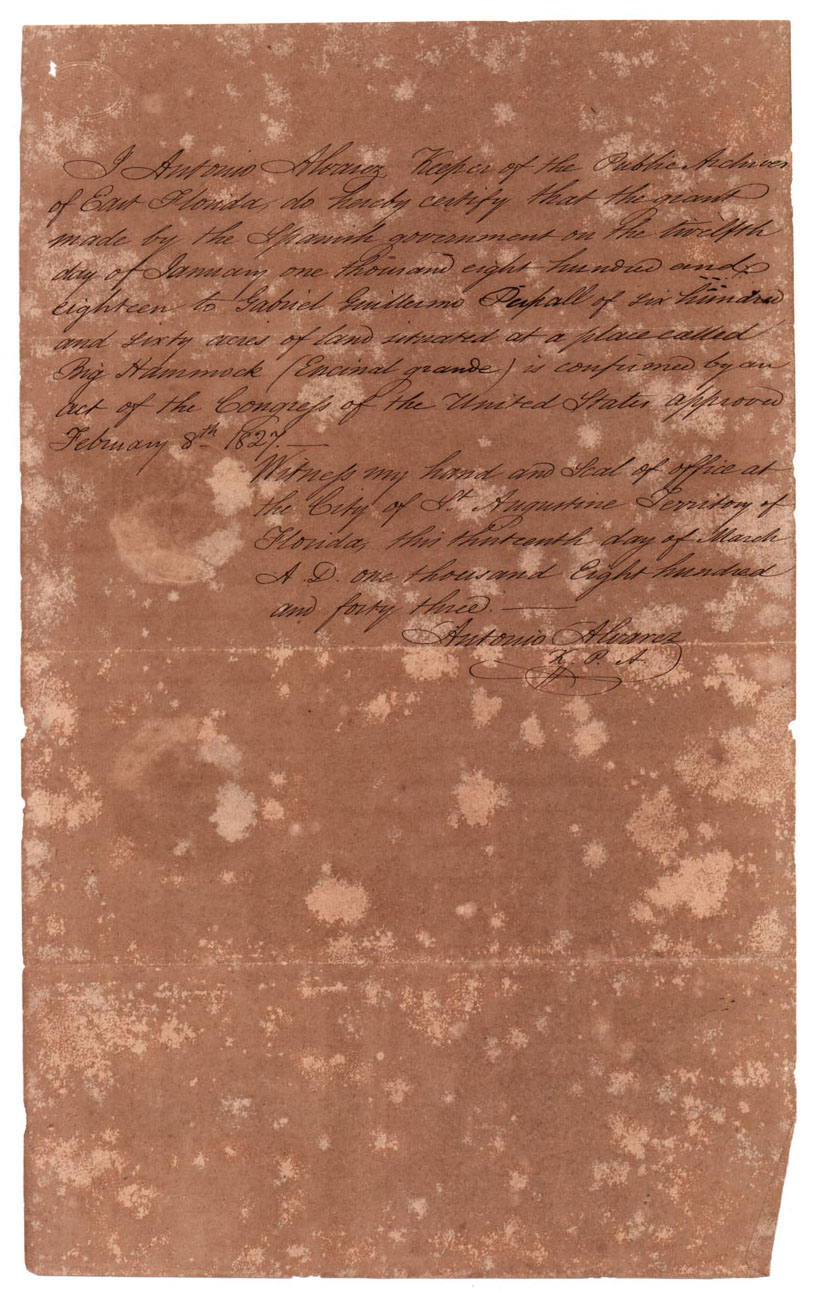 I Antonio Alvarez, Keeper of the Public Archives
of East Florida, do hereby certify that the grant
made by the Spanish government on the twelfth
day of January one thousand eight hundred and
eighteen to Gabriel Guillermo Perpall of six hundred
and sixty acres of land situated at a place called
Big Hammock (Encinal grande) is confirmed by an
act of the Congress of the United States approved
February 8th 1827. —
Witness my hand and Seal of office at
the City of St Augustine Territory of
Florida, this thirteenth day of March
A. D. one thousand Eight hundred
and forty three. —
Antonio Alvarez
K. P. A.